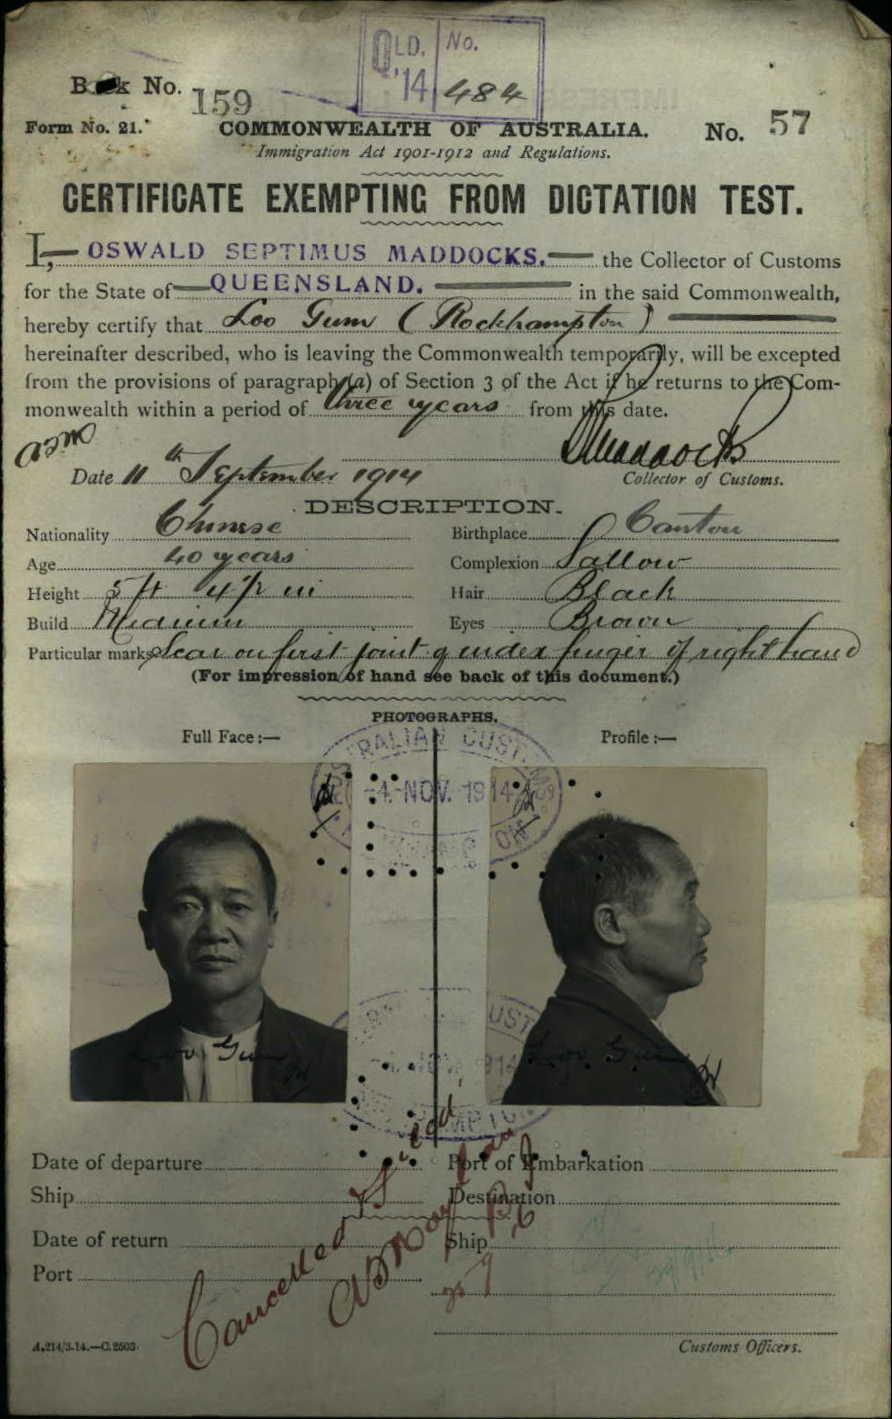 QLD. No.
'14 484
Book No. 159
Form No. 21. COMMONWEALTH OF AUSTRALIA. No. 57
Immigration Act 1901-1912 and Regulations.
CERTIFICATE EXEMPTING FROM DICTATION TEST.
I, OSWALD SEPTIMUS MADDOCKS. the Collector of Customs
for the State of QUEENSLAND. in the said Commonwealth,
hereby certify that Loo Gum (Rockhampton)
hereinafter described, who is leaving the Commonwealth temporarily, will be excepted
from the provisions of paragraph (a) of Section 3 of the Act if he returns to the Com-
monwealth within a period of three years from this date.
OSMaddocks
Date 11th September 1914 Collector of Customs.
DESCRIPTION.
Nationality Chinese Birthplace Canton
Age 40 years Complexion Sallow
Height 5 ft 4½ in Hair Black
Build Medium Eyes Brown
Particular marks Scar on first joint of index finger of right hand
(For impression of hand see back of this document.)
PHOTOGRAPHS.
Full Face :— Profile :—
4-NOV. 1914
Loo Gum Loo Gum
Date of departure Port of Embarkation
Ship Destination
Date of return Ship
Port
Cancelled
A.214/3.14.—C.2503. Customs Officers.